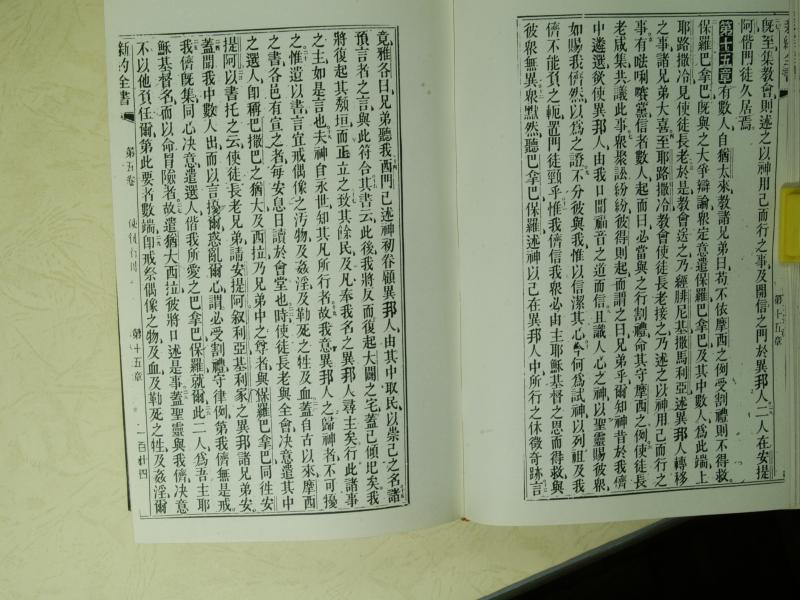 既至集教會則述之以神用己而行之事及開信之門於異邦人二人在安提
阿偕門徒久居焉
第十五章 有數人自猶太來教諸兄弟曰苟不依摩西之例受割禮則不得救
保羅巴拿巴既與之大爭辯論衆定意遣保羅巴拿巴及其中數人爲此端上
耶路撒冷見使徒長老於是教會送之乃經腓尼基撒馬利亞述異邦人轉移
之事諸兄弟大喜至耶路撒冷教會使徒長老接之乃述之以神用己而行之
事有𠵽唎嚌黨信者數人起而曰必當與之行割禮命其守摩西之例使徒長
老咸集共議此事衆聚訟紛紛彼得則起而謂之曰兄弟乎爾知神昔於我儕
中遴選欲使異邦人由我口聞福音之道而信且識人心之神以聖靈賜彼衆
如賜我儕然以爲之證不分彼與我惟以信潔其心今何爲試神以列祖及我
儕不能負之軛置門徒頸乎惟我儕信我衆必由主耶穌基督之恩而得救與
彼衆無異衆默然聽巴拿巴保羅述神以己在異邦人中所行之休徵奇跡言
竟雅各曰兄弟聽我西門已述神初眷顧異邦人由其中取民以崇己之名諸
預言者之言與此符合其書云此後我將反而復起大闢之宅蓋已傾圮矣我
將復起其頽垣而正立之致其餘民及凡奉我名之異邦人尋主矣行此諸事
之主如是言也夫神自永世知其凡所行者故我意異邦人之歸神者不可擾
之惟遺以書言宜戒偶像之汚物及姦淫及勒死之牲及血蓋自古以來摩西
之書各邑有宣之者每安息日讀於會堂也時使徒長老與全會決意遣其中
之選人卽稱巴撒巴之猶大及西拉乃兄弟中之尊者與保羅巴拿巴同徃安
提阿以書托之云使徒長老兄弟請安提阿叙利亞基利家之異邦諸兄弟安
蓋聞我中數人出而以言擾爾惑亂爾心謂必受割禮守律例第我儕無是戒
我儕既集同心決意遣選人偕我所愛之巴拿巴保羅就爾此二人爲吾主耶
穌基督名而以命冒險者故遣猶大西拉彼將口述是事蓋聖靈與我儕決意
不以他負任爾第此要者數端卽戒祭偶像之物及血及勒死之牲及姦淫爾
新約全書 第五卷 使徒行傳 第十五章 一百卄四
第十五章